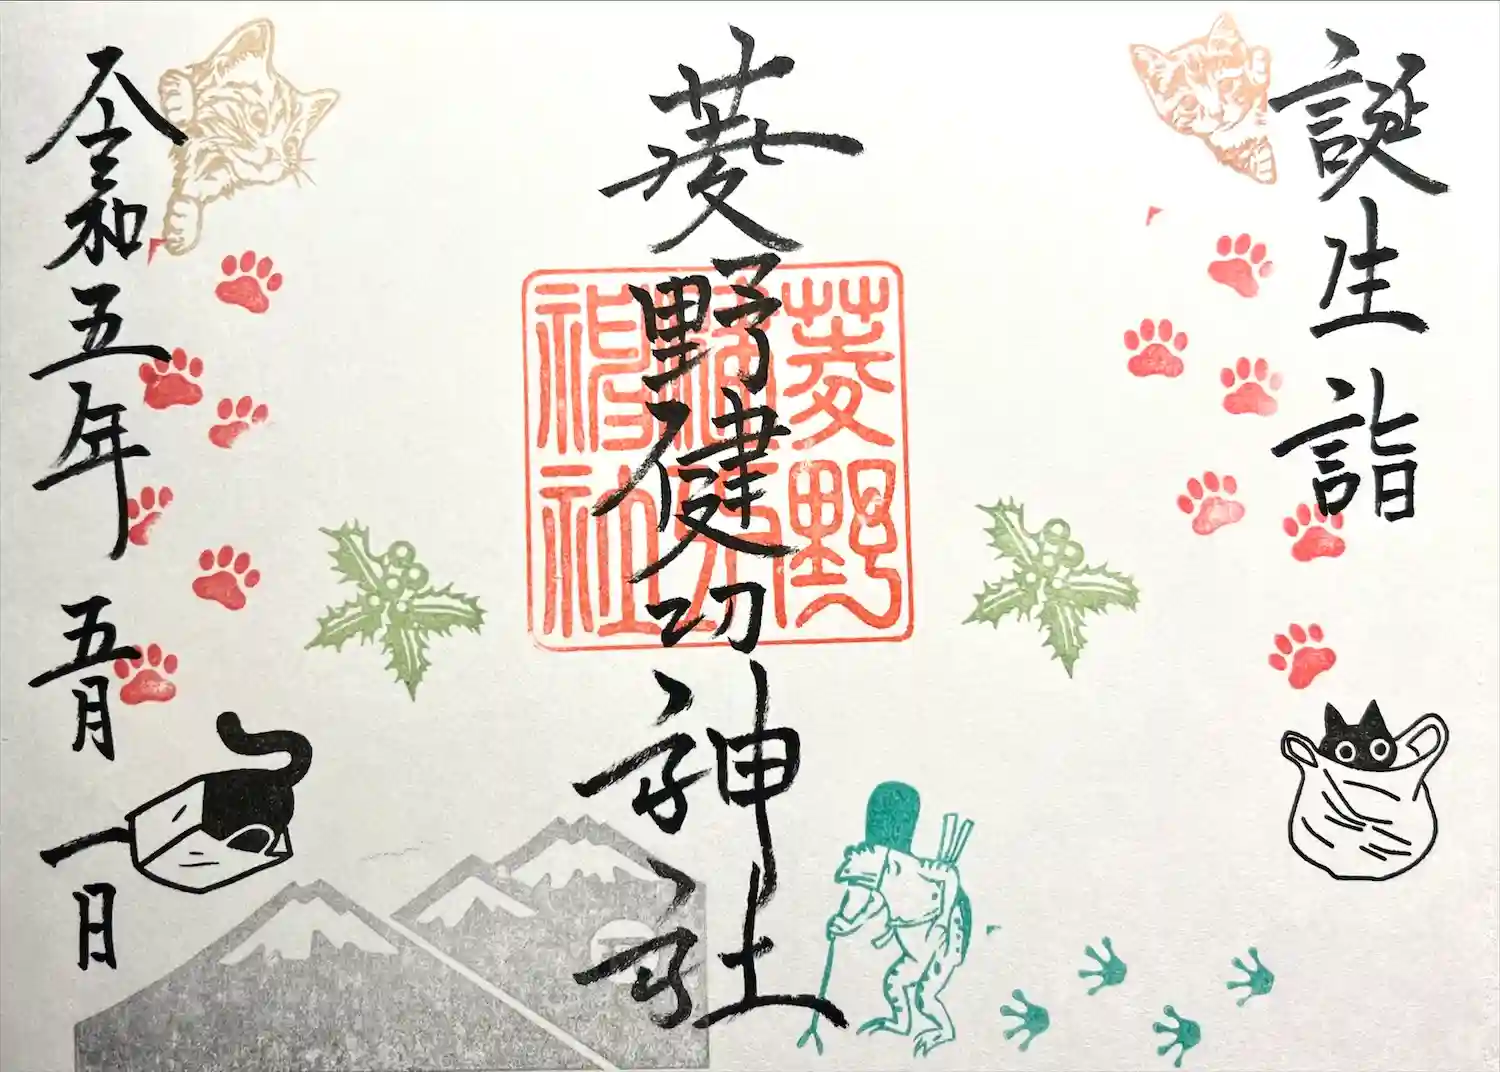 誕生詣
菱野健功神社
令和五年 五月 一日
菱野
神社